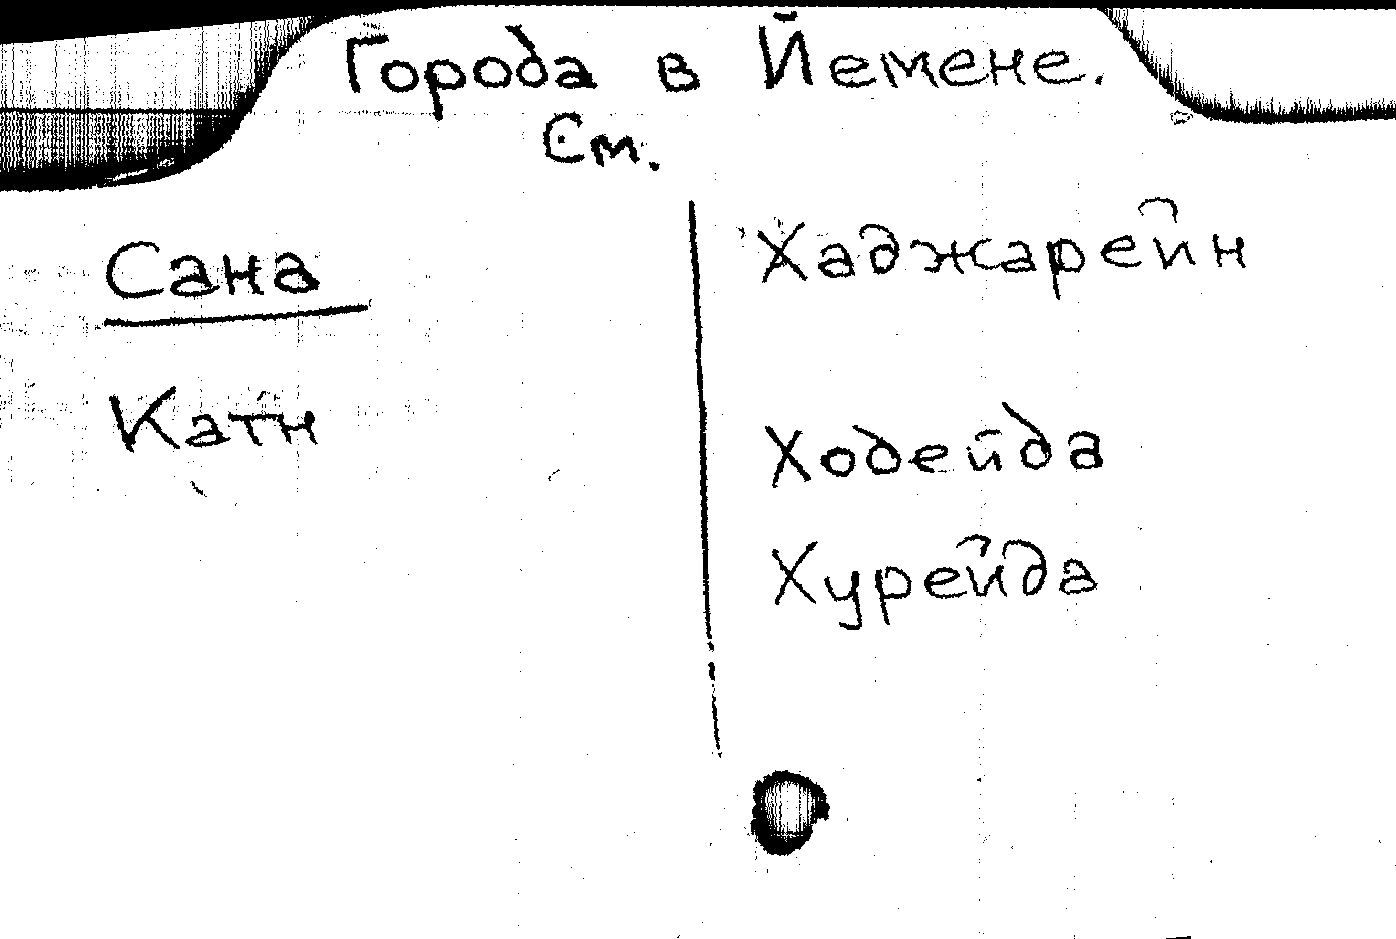 Города в Йемене.
См.
Сана
Катн
Хаджарейн
Ходейда
Хурейда